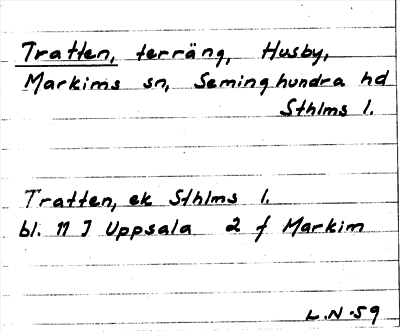 Tratten, terräng, Husby,
Markims sn, Seminghundra hd
Sthlms l.
Tratten, ek Sthlms l.
bl. 11 I Uppsala 2 f Markim
L.N-59